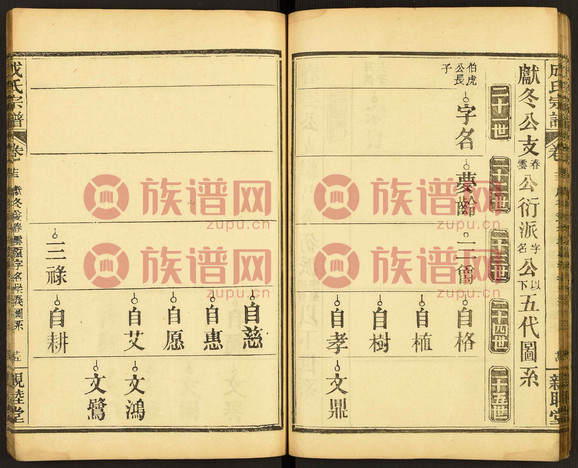 成氏宗譜
卷
獻冬公支春雲公衍派字名公以下五代圖系
親睦堂
二十一世
二十二世
二十三世
二十四世
二十五世
伯虎公長子
字名
夢齡
三
自格
自植
自樹
自孝
文鼎
自慈
自惠
自愿
自艾
文鴻
文鷺
三祿
自耕
成氏宗譜
卷
親睦堂
族谱网
zupu.cn
族谱网
zupu.cn
族谱网
zupu.cn
族谱网
zupu.cn